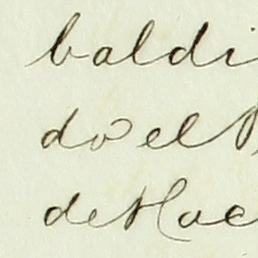 baldi
do el
de Hac